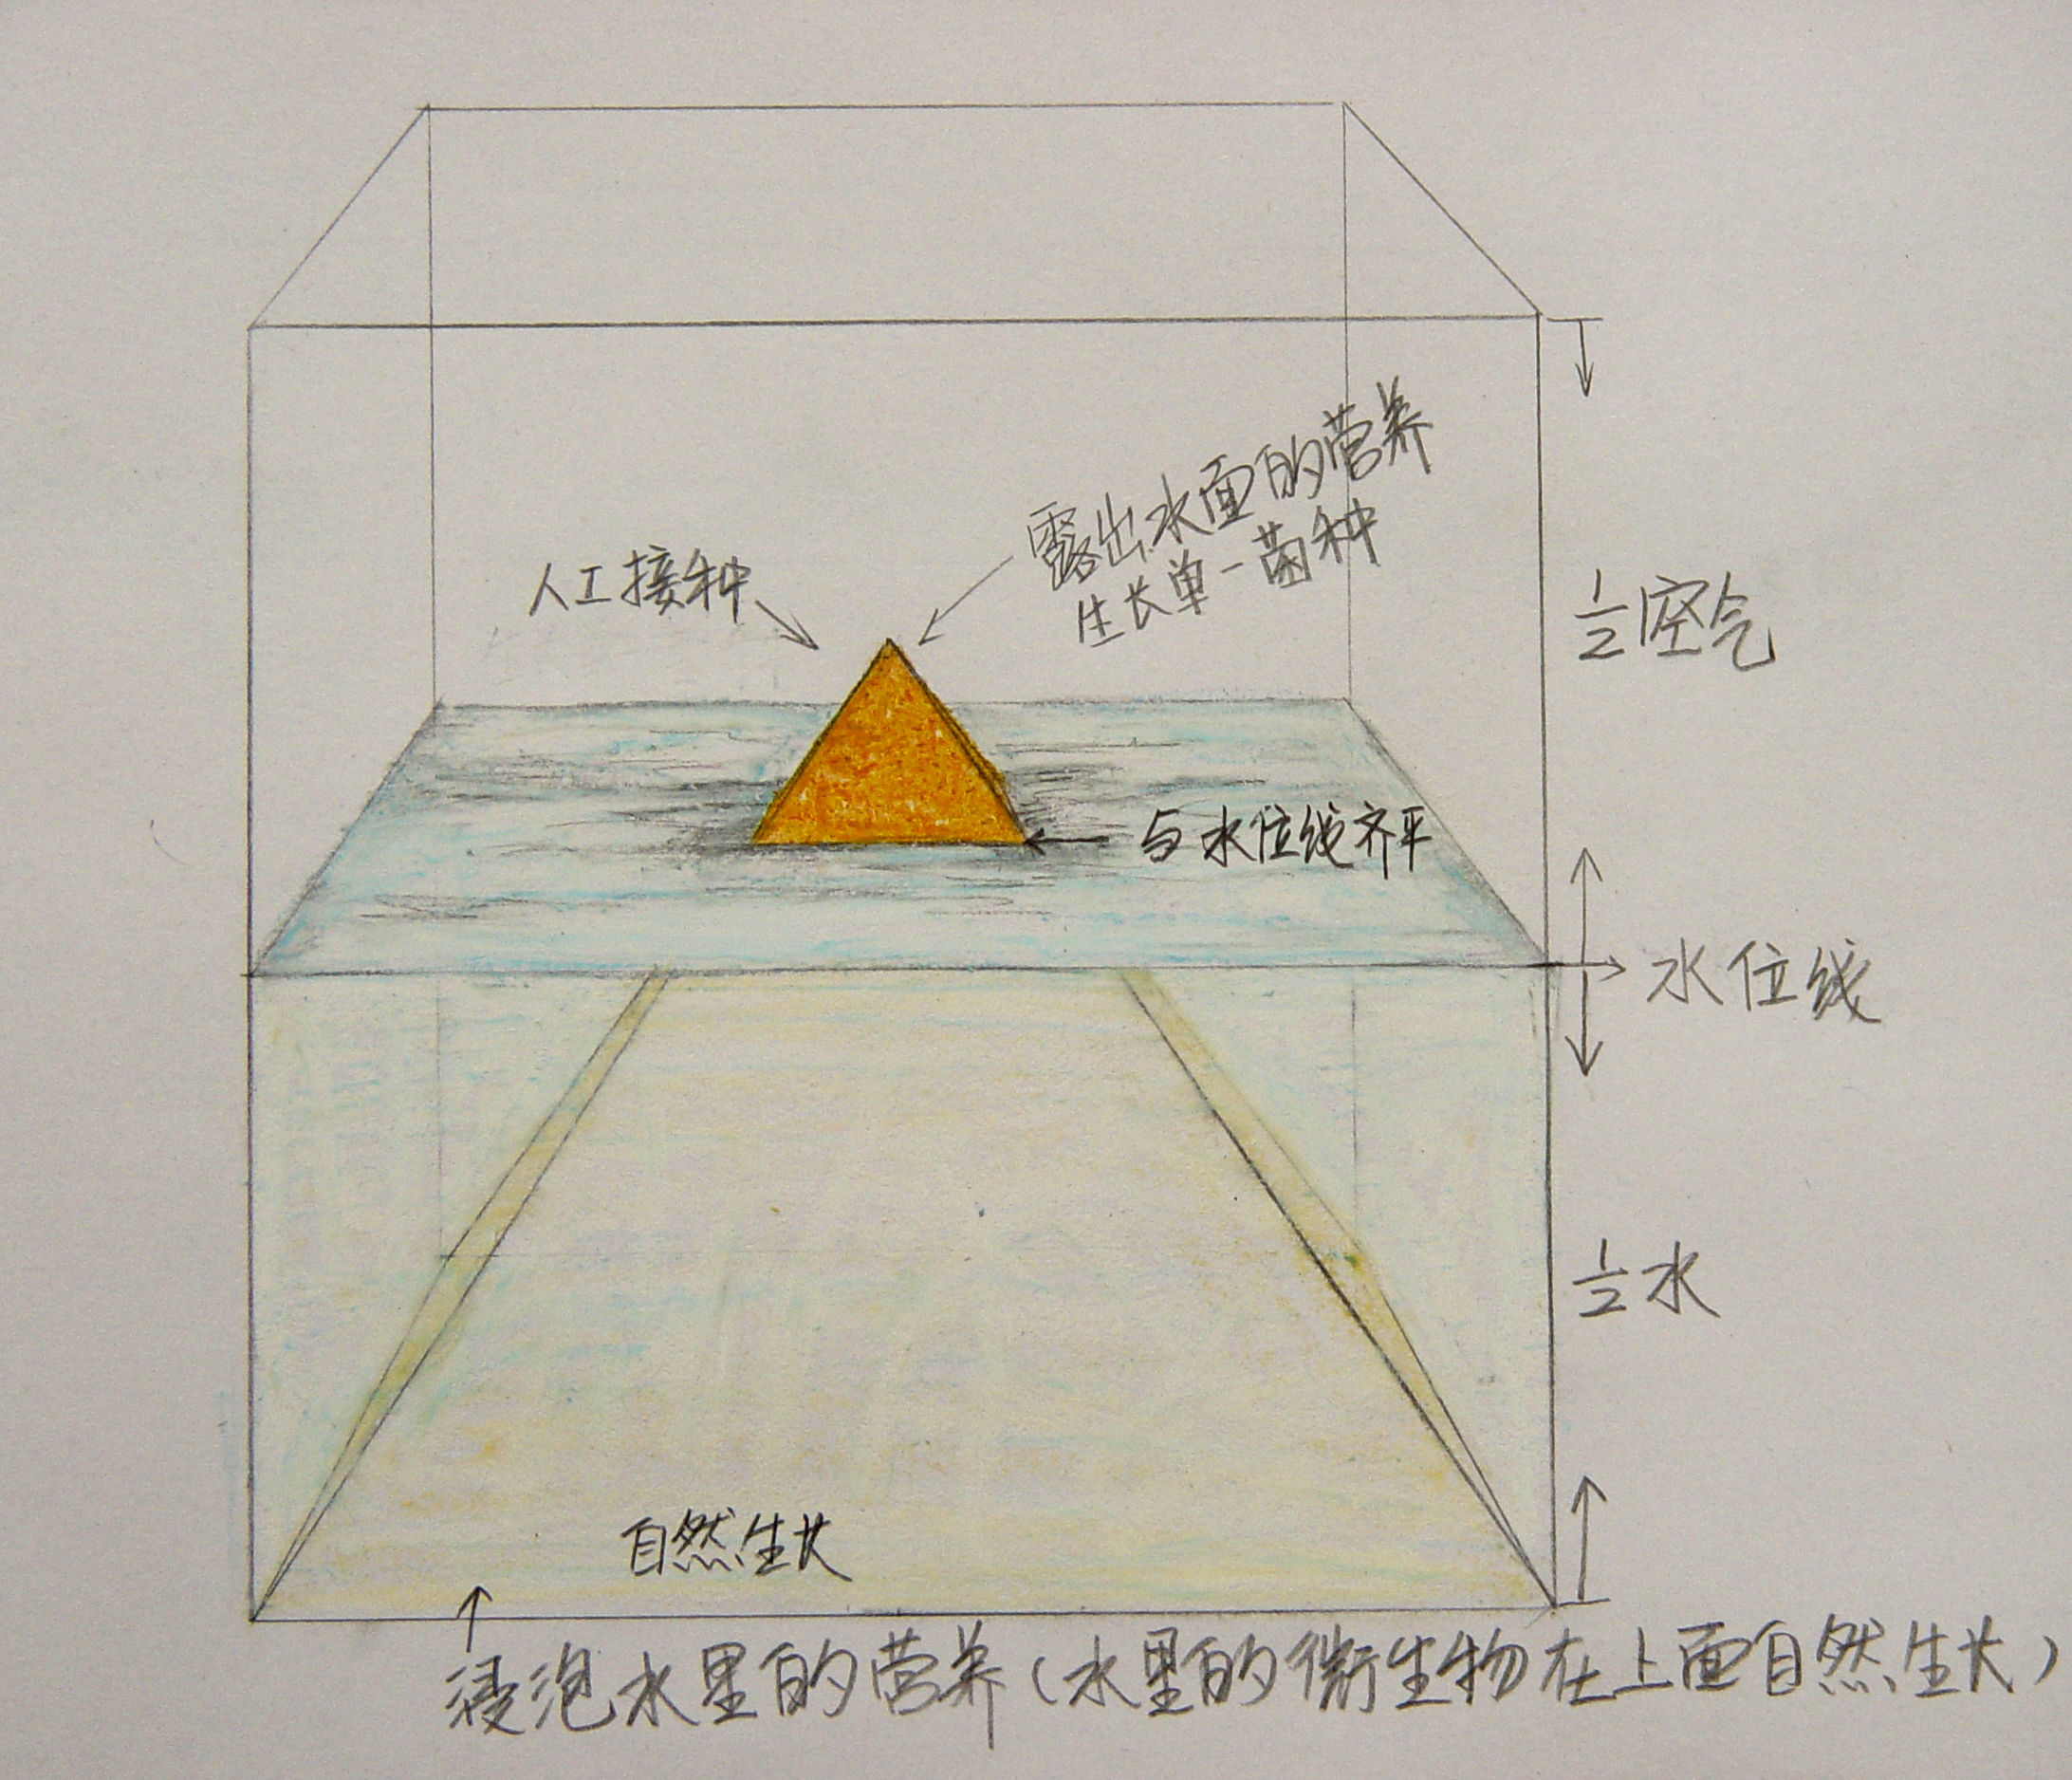 露出水面的营养
生长单一菌种
人工接种
1/2空气
与水位线齐平
水位线
1/2水
自然生长
浸泡水里的营养(水里的微生物在上面自然生长)